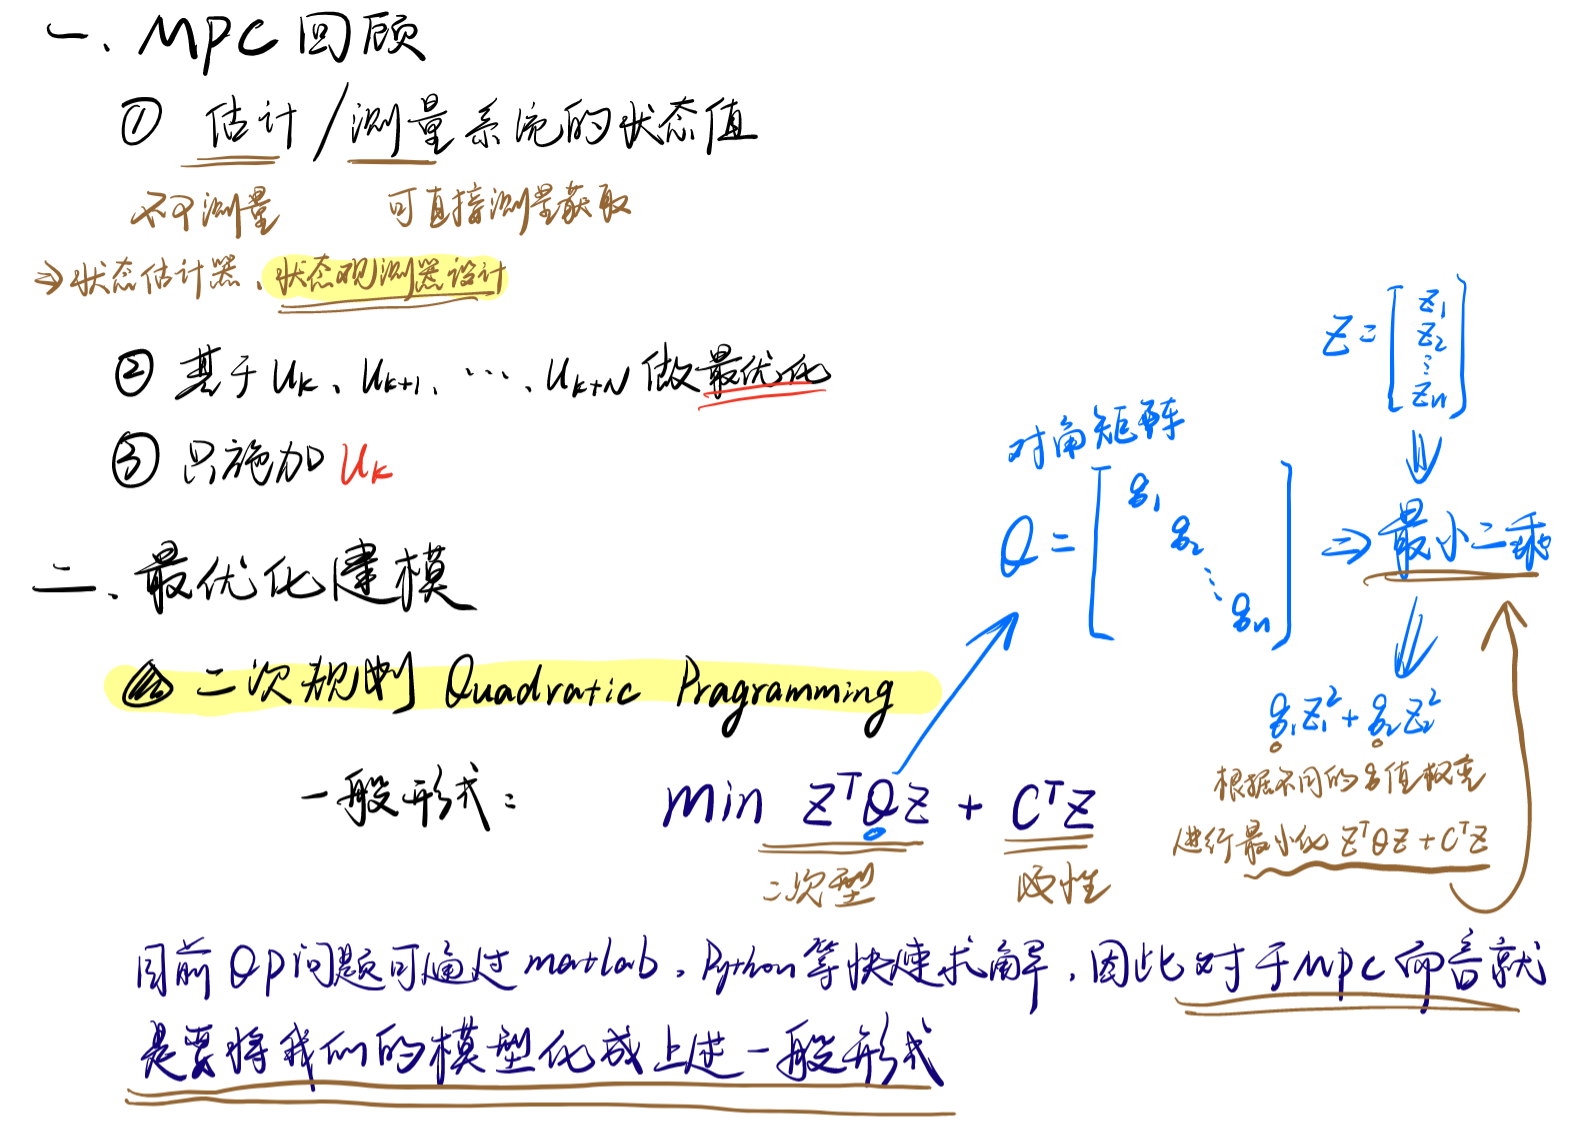 一、MPC回顾
① 估计/测量系统的状态值
不可测量 可直接测量获取
⇒状态估计器、状态观测器设计
② 基于 Uk、Uk+1、…、Uk+N 做最优化
③ 只施加 Uk
二、最优化建模
二次规划 Quadratic Pragramming
一般形式: min Z^TQZ + C^TZ
二次型 线性
对角矩阵
Q = [q1 q2 ⋱ qn] ⇒ 最小二乘
Z = [z1 z2 ⋮ zn]
q1z1^2 + q2z2^2
根据不同的q值权重
进行最小化 Z^TQZ + C^TZ
目前QP问题可通过matlab、Python等快速求解,因此对于MPC而言就
是要将我们的模型化成上述一般形式